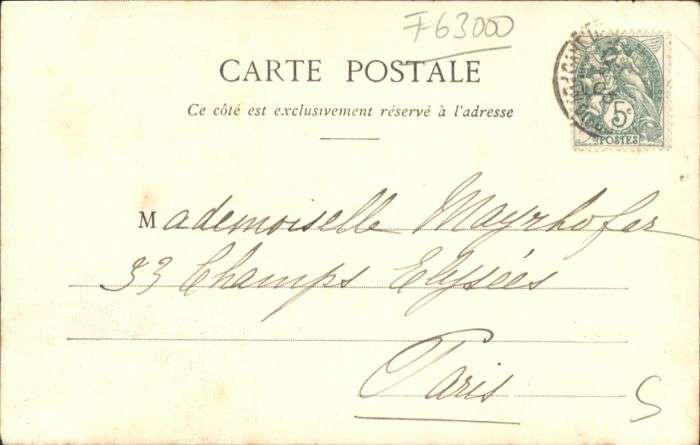 F63000
CARTE POSTALE
Ce côté est exclusivement réservé à l'adresse
5c
POSTES
Mademoiselle Mayrhofer
33 Champs Elysées
Paris